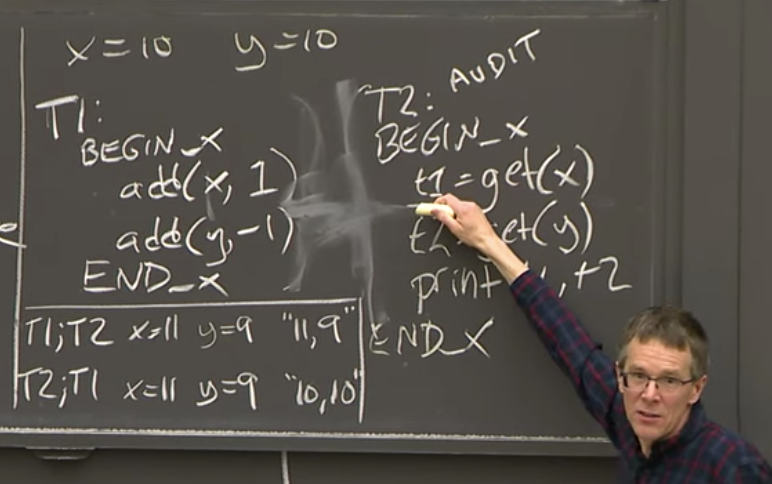 x=10 y=10
T1:
BEGIN_X
add(x, 1)
add(y,-1)
END_X
T1;T2 x=11 y=9 "11,9"
T2;T1 x=11 y=9 "10,10"
T2: AUDIT
BEGIN_X
t1=get(x)
get(y)
print t2
END_X